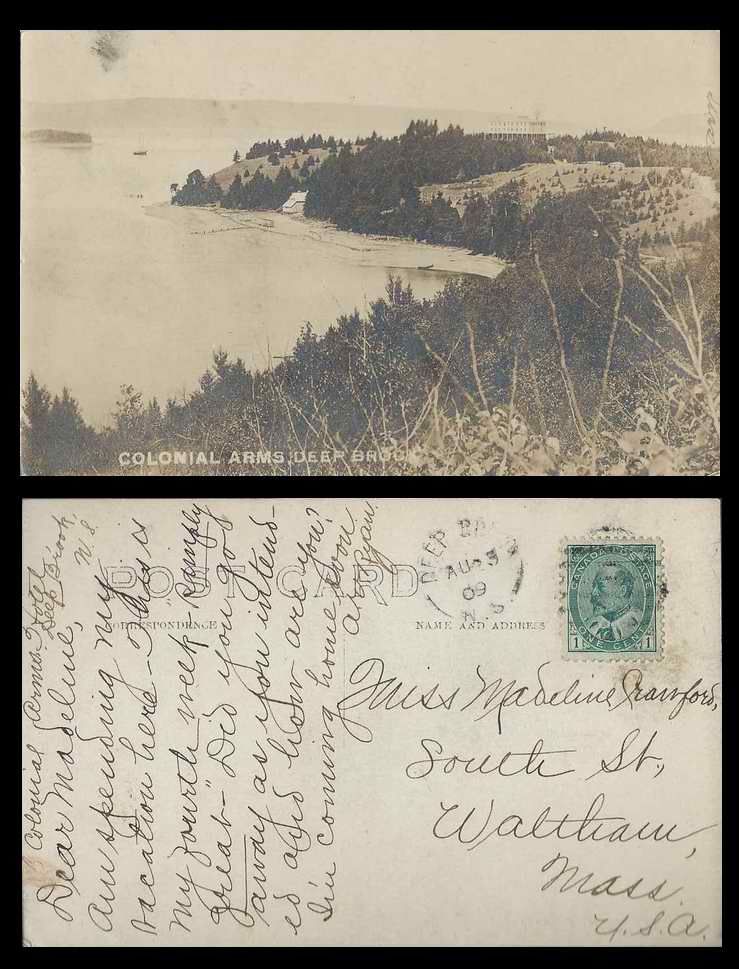 COLONIAL ARMS, DEEP BROOK
POST CARD
CORRESPONDENCE
NAME AND ADDRESS
DEEP
AU 3
09
N.S
CANADA POSTAGE
1 ONE CENT 1
Colonial Arms Hotel
Deep Brook,
N.S.
Dear Madeline,
Am spending my
vacation here - This is
my fourth week simply
great - Did you go
away as you intend-
ed and how are you?
I'm coming home soon
Ryan
Miss Madeline Crawford,
South St.,
Waltham,
Mass.
U.S.A.